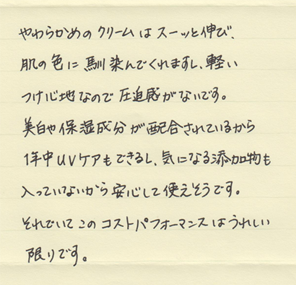 やわらかめのクリームはスーッと伸び、
肌の色に馴染んでくれますし、軽い
つけ心地なので圧迫感がないです。
美白や保湿成分が配合されているから
1年中UVケアもできるし、気になる添加物も
入っていないから安心して使えそうです。
それでいてこのコストパフォーマンスはうれしい
限りです。